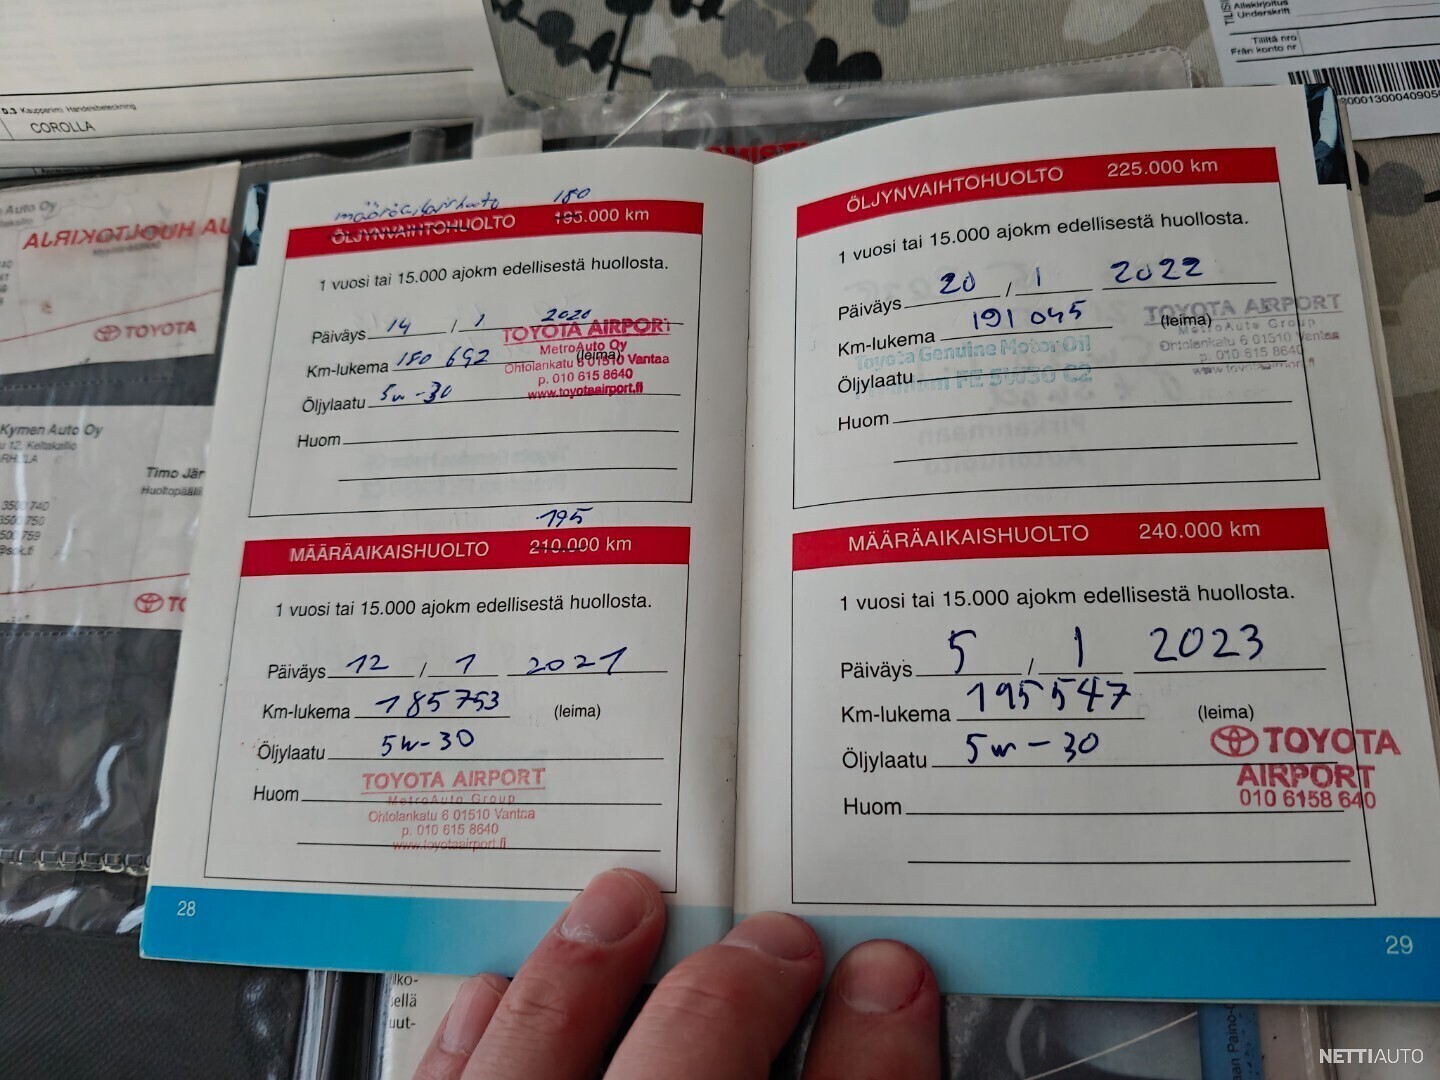 D.3 Kauppanimi Handelsbeteckning
COROLLA
Allekirjoitus
Underskrift
Tililtä nro
Från konto nr
Auto Oy
JA HUOLTOKIRJA
TOYOTA
Kymen Auto Oy
12, Keltakallio
Timo Jär
Huoltopääll
3500 740
3500 750
500 759
@sok.fi
määräaikaishuolto 180
ÖLJYNVAIHTOHUOLTO 195.000 km
1 vuosi tai 15.000 ajokm edellisestä huollosta.
Päiväys 14 / 1 2020
Km-lukema 180 692 (leima)
Öljylaatu 5w-30
Huom
TOYOTA AIRPORT
MetroAuto Oy
Ohtolankatu 6 01510 Vantaa
p. 010 615 8640
www.toyotaairport.fi
195
MÄÄRÄAIKAISHUOLTO 210.000 km
1 vuosi tai 15.000 ajokm edellisestä huollosta.
Päiväys 12 / 1 2021
Km-lukema 185753 (leima)
Öljylaatu 5w-30
Huom
TOYOTA AIRPORT
MetroAuto Group
Ohtolankatu 6 01510 Vantaa
p. 010 615 8640
www.toyotaairport.fi
28
ÖLJYNVAIHTOHUOLTO 225.000 km
1 vuosi tai 15.000 ajokm edellisestä huollosta.
Päiväys 20 / 1 2022
Km-lukema 191 045 (leima)
Öljylaatu
Huom
Toyota Genuine Motor Oil
Premium FE 5W30 C2
TOYOTA AIRPORT
MetroAuto Group
Ohtolankatu 6 01510 Vantaa
p. 010 615 8640
www.toyotaairport.fi
MÄÄRÄAIKAISHUOLTO 240.000 km
1 vuosi tai 15.000 ajokm edellisestä huollosta.
Päiväys 5 / 1 2023
Km-lukema 195547 (leima)
Öljylaatu 5w-30
Huom
TOYOTA
AIRPORT
010 6158 640
29
NETTIAUTO